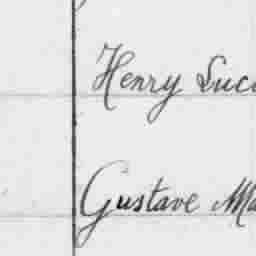 Henry Luci
Gustave Ma